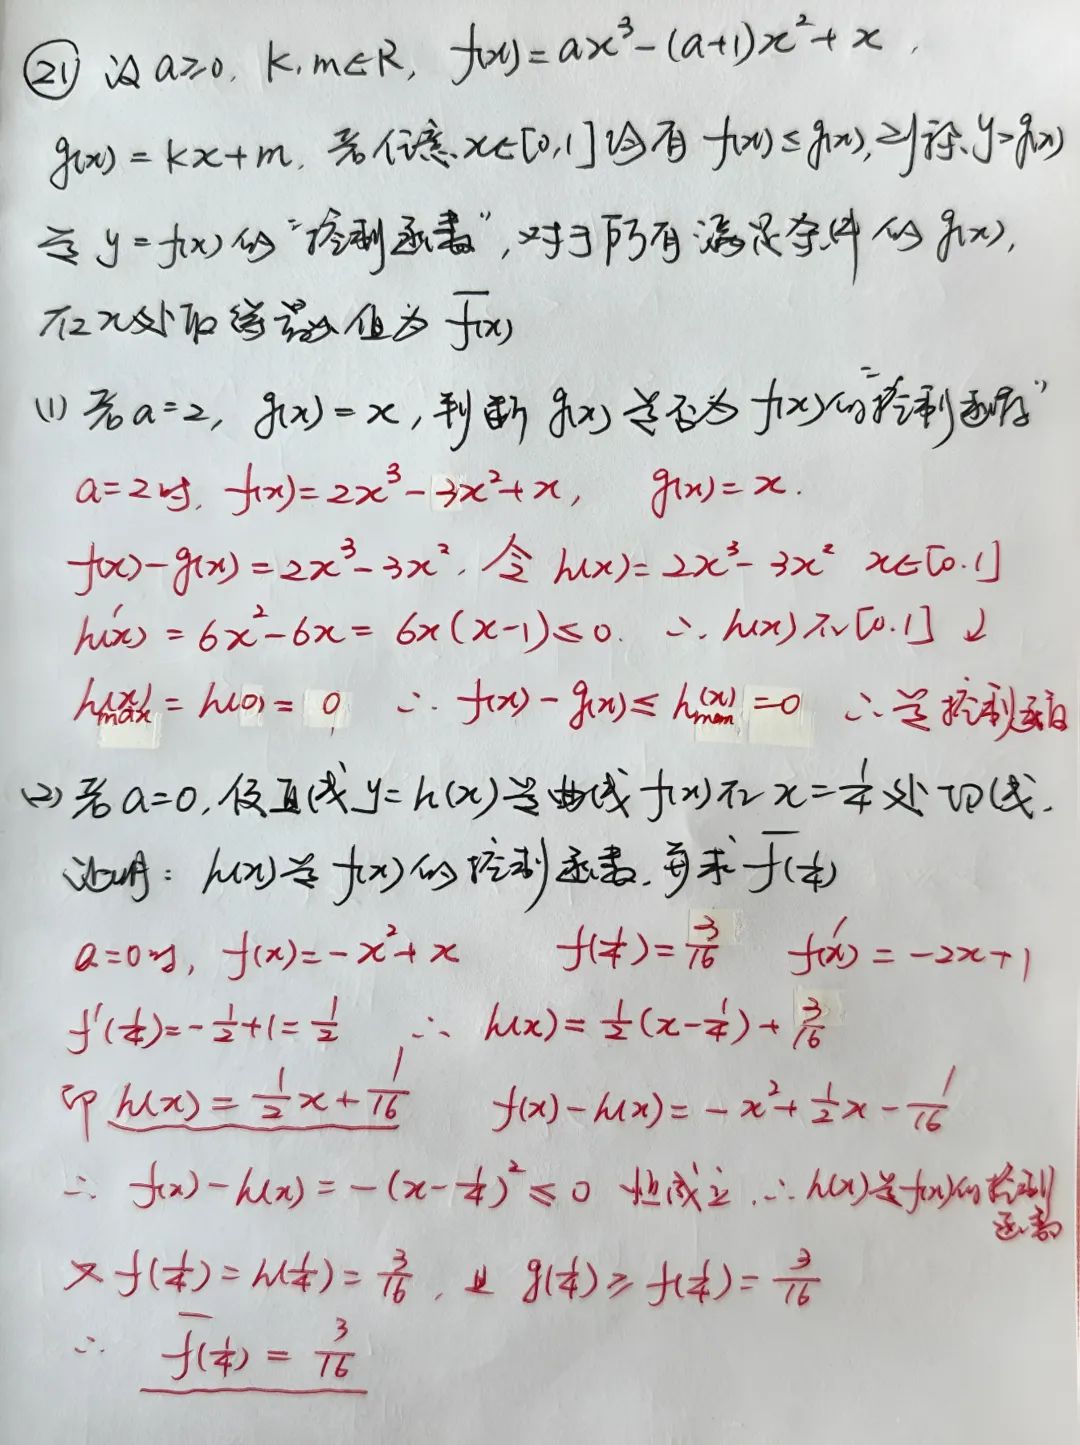 ㉑ 设a≥0, k,m∈R, f(x)=ax³-(a+1)x²+x,
g(x)=kx+m, 若任意x∈[0,1]均有f(x)≤g(x),则称y=g(x)
是y=f(x)的"控制函数",对于所有满足条件的g(x),
在x处取得最小值为f̄(x)
(1) 若a=2, g(x)=x, 判断g(x)是否为f(x)的"控制函数"
a=2时, f(x)=2x³-3x²+x, g(x)=x.
f(x)-g(x)=2x³-3x². 令h(x)=2x³-3x² x∈[0.1]
h'(x)=6x²-6x=6x(x-1)≤0. ∴h(x)在[0.1]↓
h(x)max=h(0)=0 ∴f(x)-g(x)≤h(x)max=0 ∴是控制函数
(2) 若a=0,设直线y=h(x)是曲线f(x)在x=1/4处切线.
证明: h(x)是f(x)的控制函数,并求f̄(1/4)
a=0时, f(x)=-x²+x f(1/4)=3/16 f'(x)=-2x+1
f'(1/4)=-1/2+1=1/2 ∴h(x)=1/2(x-1/4)+3/16
即h(x)=1/2x+1/16 f(x)-h(x)=-x²+1/2x-1/16
∴f(x)-h(x)=-(x-1/4)²≤0 恒成立.∴h(x)是f(x)的控制函数
又f(1/4)=h(1/4)=3/16, 且g(1/4)≥f(1/4)=3/16
∴ f̄(1/4)=3/16